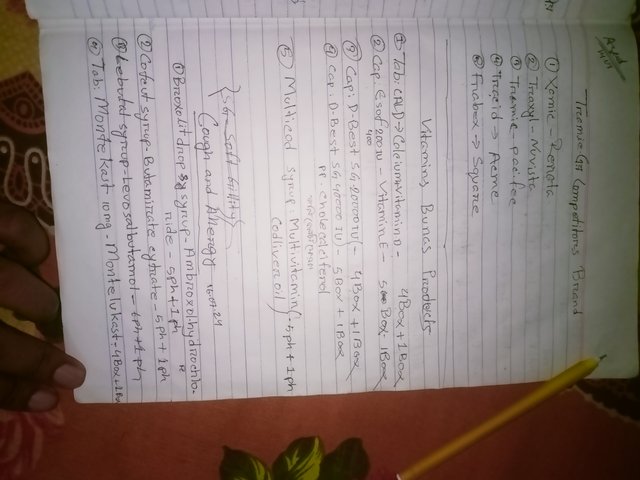 Tramic Gr Competitors Brand
① Xamic - Renata
② Traxyl - Nvista
③ Tramic - pacific
④ Tracid → Acme
⑤ Anabex → Square
Vitamins Bunas Products
① Tab: CALD → Calcium+Vitamin.D - 4Box + 1Box
② Cap. E sof 200 IU - Vitamin.E - 5 Box - 1Box
400
③ Cap: D-Best SG 20000 IU - 4Box + 1Box
④ Cap: D-Best SG 40000 IU) - 5Box + 1Box
PP - cholecalciferol
⑤ Multicod syrup: Multivitamin( - 5ph + 1ph
Codlivero oil)
Cough and Allergy 16.07.24
① Broxolit drop syrup - Ambroxolhydrochlo-
ride - 5ph + 1ph
② Cofent syrup - Butamirate cytrate - 5ph + 1ph
③ Lebutal syrup - Levosalbutamol - 6ph + 1ph
④ Tab: Montekast 10mg - Montelukast - 4Box + 1Box